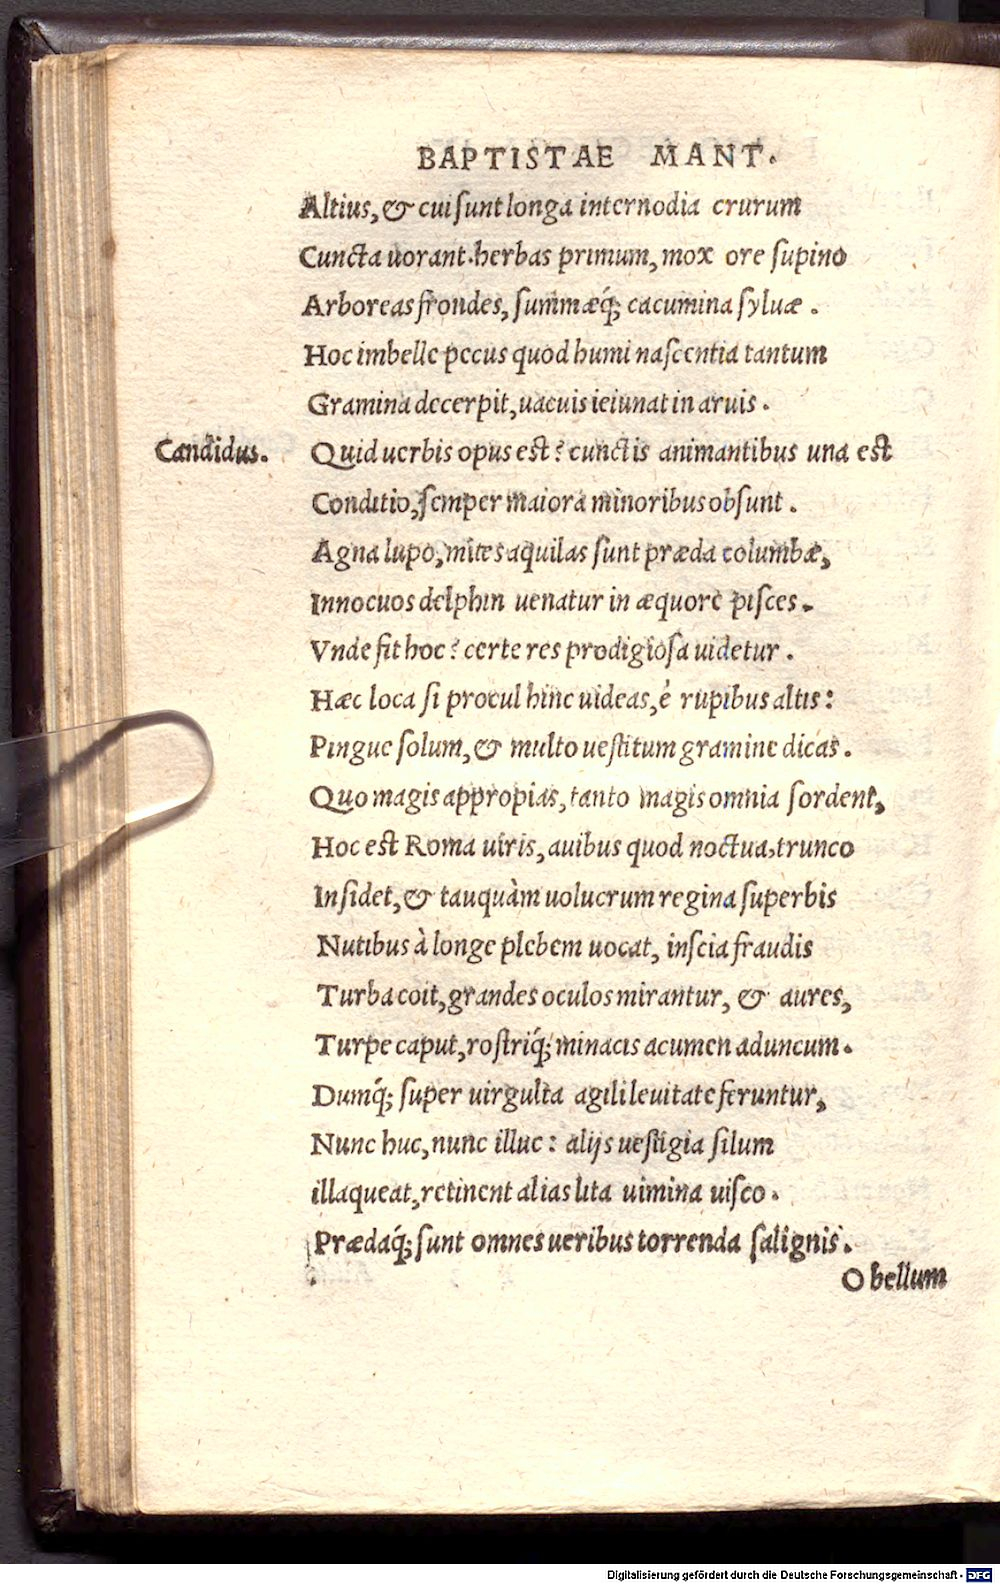 BAPTISTAE MANT.
Altius, & cui ſunt longa internodia crurum
Cuncta uorant. herbas primum, mox ore ſupino
Arboreas frondes, ſummæq́; cacumina ſyluæ .
Hoc imbelle pecus quod humi naſcentia tantum
Gramina decerpit, uacuis ieiunat in aruis .
Candidus. Quid uerbis opus est? cunctis animantibus una est
Conditio, ſemper maiora minoribus obſunt .
Agna lupo, mites aquilas ſunt præda columbæ,
Innocuos delphin uenatur in æquore piſces .
Vnde fit hoc? certe res prodigioſa uidetur .
Hæc loca ſi procul hinc uideas, è rupibus altis:
Pingue ſolum, & multo ueſtitum gramine dicas .
Quo magis appropias, tanto magis omnia ſordent,
Hoc est Roma uiris, auibus quod noctua, trunco
Inſidet, & tauquàm uolucrum regina ſuperbis
Nutibus à longe plebem uocat, inſcia fraudis
Turba coit, grandes oculos mirantur, & aures,
Turpe caput, roſtriq́; minacis acumen aduncum .
Dumq́; ſuper uirgulta agili leuitate feruntur,
Nunc huc, nunc illuc: alijs ueſtigia filum
illaqueat, retinent alias lita uimina uiſco .
Prædaq́; ſunt omnes ueribus torrenda ſalignis .
O bellum
Digitalisierung gefördert durch die Deutsche Forschungsgemeinschaft - DFG